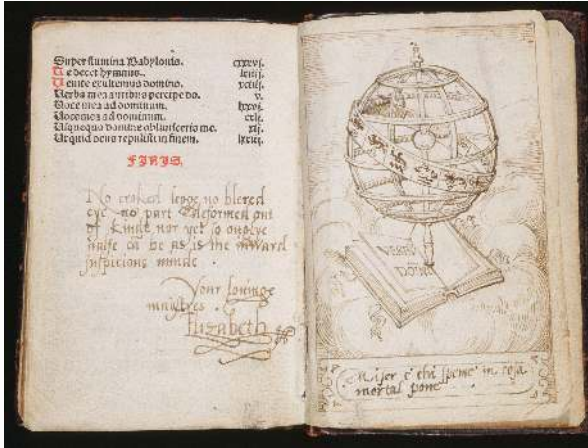 Super flumina Babylonis. cxxxvi.
Te decet hymnus. lxiiij.
Uenite exultemus domino. xciiij.
Uerba mea auribus percipe do. v.
Uoce mea ad dominum. lxxvi.
Uoce mea ad dominum. cxli.
Usquequo domine obliuisceris me. xij.
Ut quid deus repulisti in finem. lxxiij.
FINIS.
No croked legge no blered
eye no part deformed out
of kinde nor yet so
be as is the inward
suspicious minde
Your louinge
maystres
Elizabeth
VERBŪ
DOMINI
Miser è chi speme in cosa
mortal pone